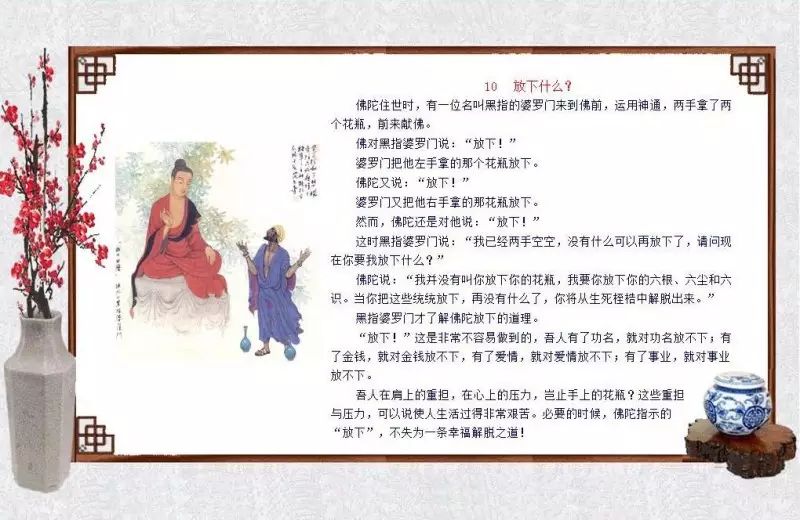 10 放下什么？
佛陀住世时，有一位名叫黑指的婆罗门来到佛前，运用神通，两手拿了两
个花瓶，前来献佛。
佛对黑指婆罗门说：“放下！”
婆罗门把他左手拿的那个花瓶放下。
佛陀又说：“放下！”
婆罗门又把他右手拿的那花瓶放下。
然而，佛陀还是对他说：“放下！”
这时黑指婆罗门说：“我已经两手空空，没有什么可以再放下了，请问现
在你要我放下什么？”
佛陀说：“我并没有叫你放下你的花瓶，我要你放下你的六根、六尘和六
识。当你把这些统统放下，再没有什么了，你将从生死桎梏中解脱出来。”
黑指婆罗门才了解佛陀放下的道理。
“放下！”这是非常不容易做到的，吾人有了功名，就对功名放不下；有
了金钱，就对金钱放不下，有了爱情，就对爱情放不下；有了事业，就对事业
放不下。
吾人在肩上的重担，在心上的压力，岂止手上的花瓶？这些重担
与压力，可以说使人生活过得非常艰苦。必要的时候，佛陀指示的
“放下”，不失为一条幸福解脱之道！